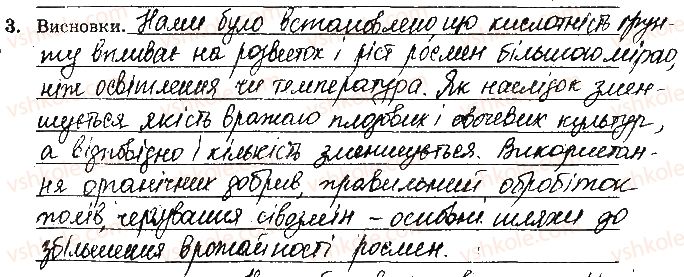 3. Висновки. Нами було встановлено, що кислотність грун-
ту впливає на розвиток і ріст рослин більшою мірою,
ніж освітлення чи температура. Як наслідок змен-
шується якість вражаю плодових і овочевих культур,
а відповідно і кількість зменшується. Використан-
ня органічних добрив, правильний обробіток
полів, чергування сівозмін – основні шляхи до
збільшення врожайності рослин.